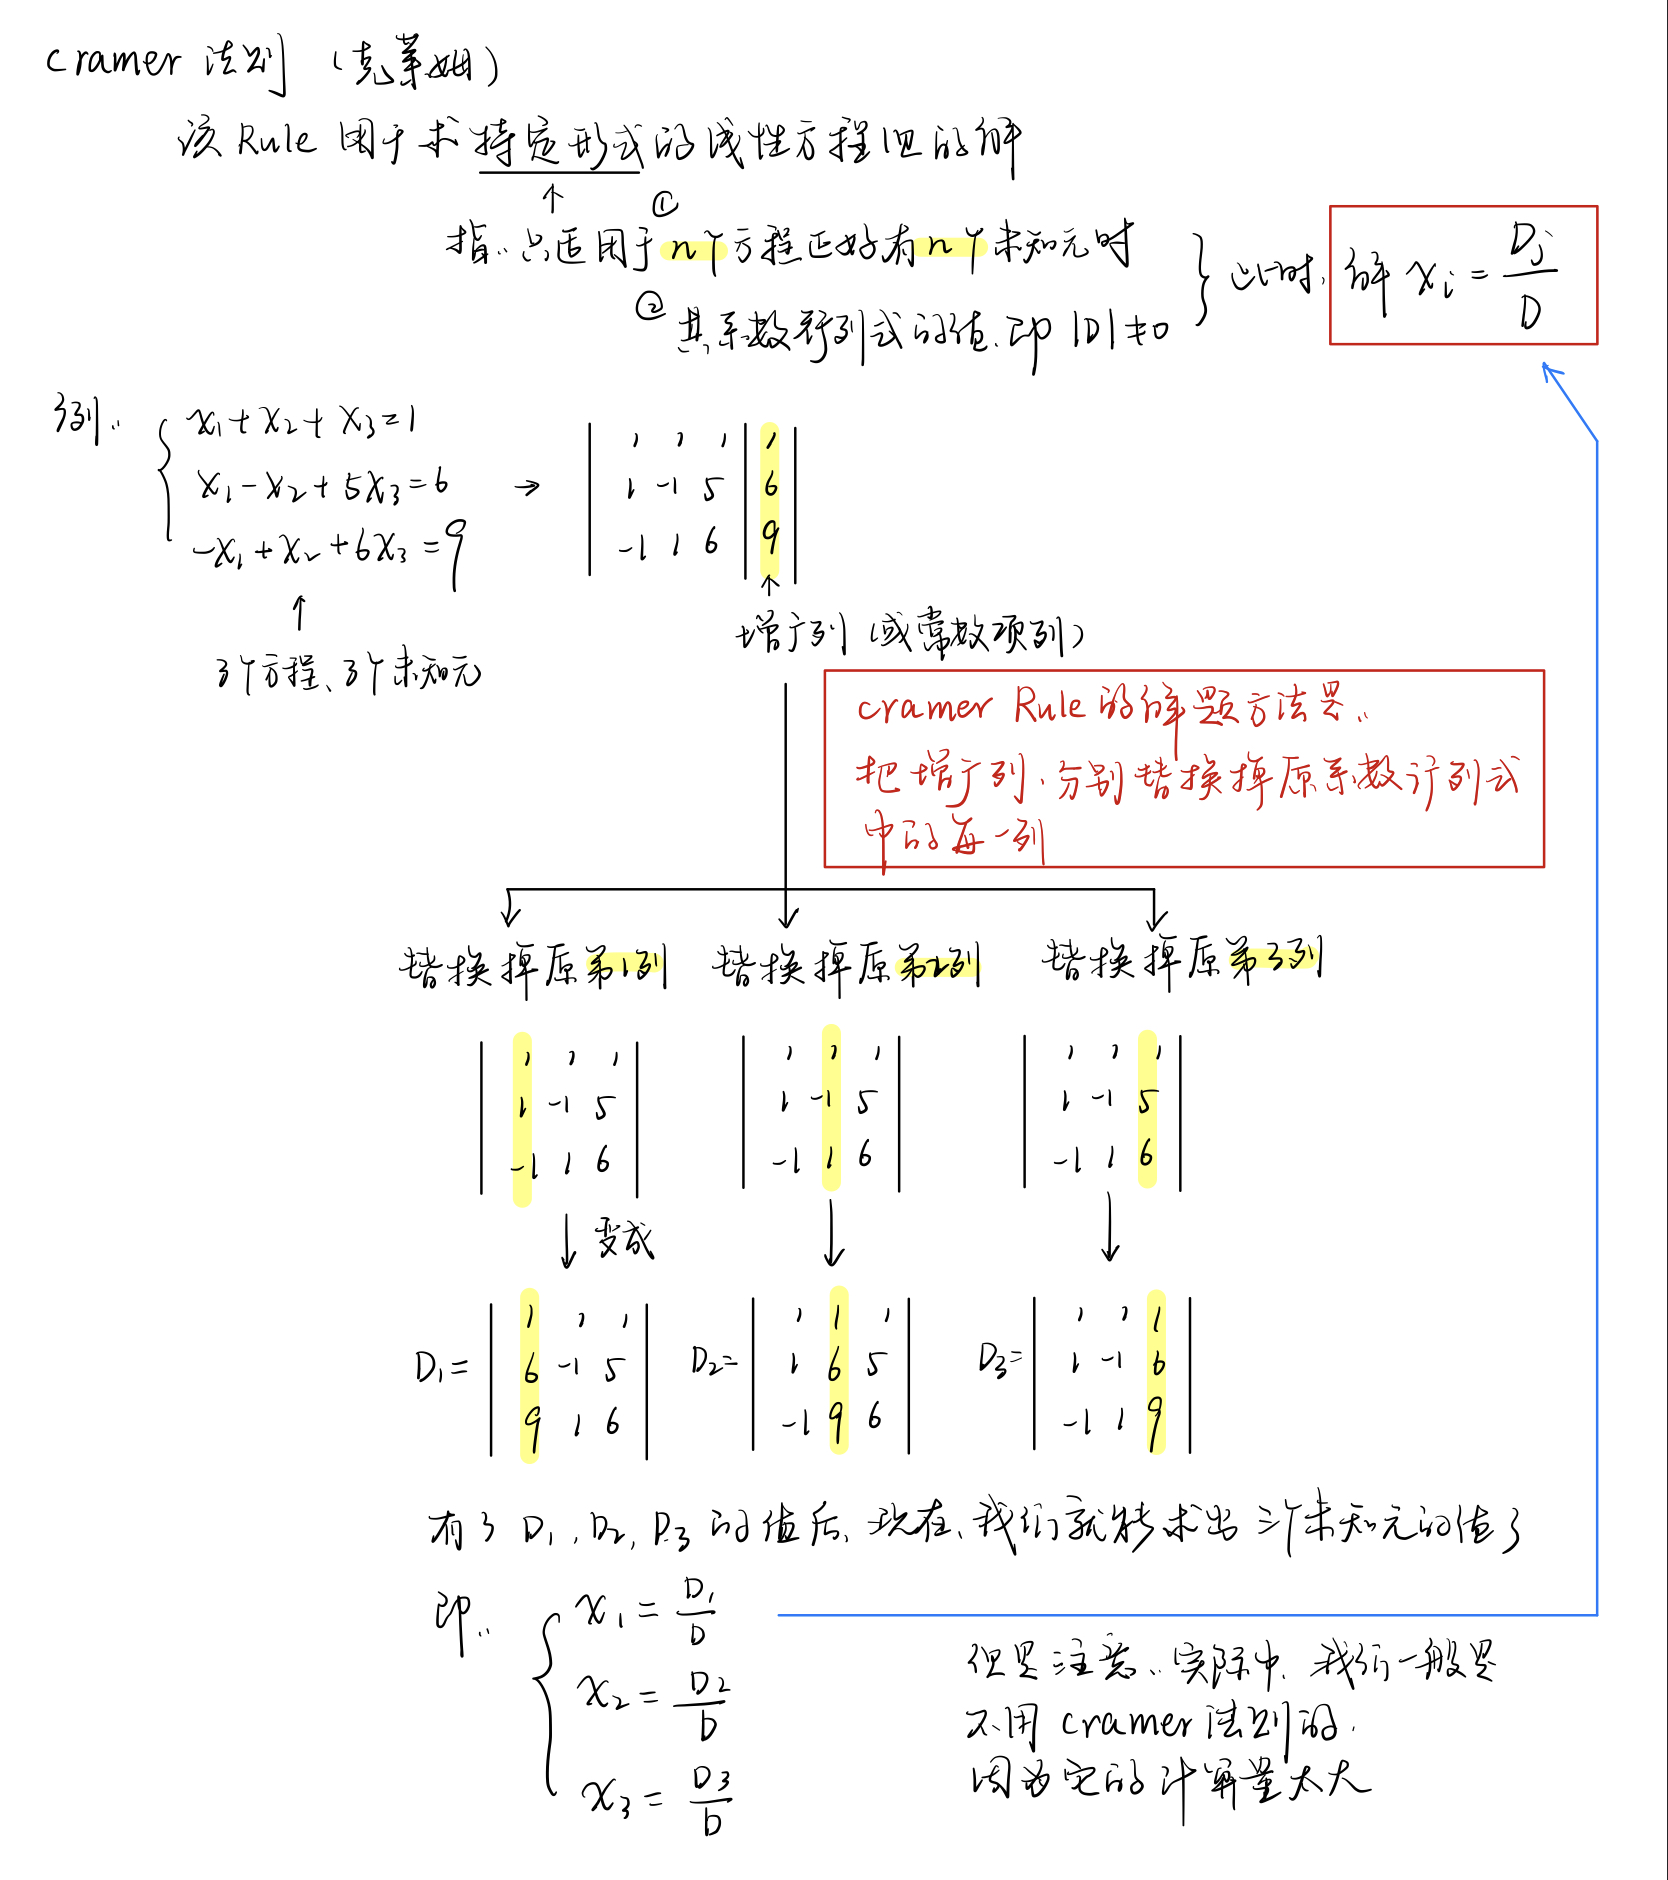 cramer 法则 (克莱姆)
该 Rule 用于求特定形式的线性方程组的解
↑
指: ①只适用于n个方程正好有n个未知元时
②其系数行列式的值,即 |D|≠0
} 此时, 解 xi = Dj/D
例: { x1+x2+x3=1
x1-x2+5x3=6 →
-x1+x2+6x3=9
↑
3个方程、3个未知元
| 1 1 1 | 1 |
| 1 -1 5 | 6 |
| -1 1 6 | 9 |
↑
增广列 (或常数项列)
cramer Rule 的解题方法是:
把增广列,分别替换掉原系数行列式
中的每一列
替换掉原第1列 替换掉原第2列 替换掉原第3列
| 1 1 1 | | 1 1 1 | | 1 1 1 |
| 1 -1 5 | | 1 -1 5 | | 1 -1 5 |
| -1 1 6 | | -1 1 6 | | -1 1 6 |
↓ 变成 ↓ ↓
| 1 1 1 | | 1 1 1 | | 1 1 1 |
D1= | 6 -1 5 | D2= | 1 6 5 | D3= | 1 -1 6 |
| 9 1 6 | | -1 9 6 | | -1 1 9 |
有了 D1, D2, D3 的值后,现在,我们就能求出三个未知元的值了
即: { x1 = D1/D
x2 = D2/D
x3 = D3/D
但是注意: 实际中,我们一般是
不用 cramer 法则的,
因为它的计算量太大